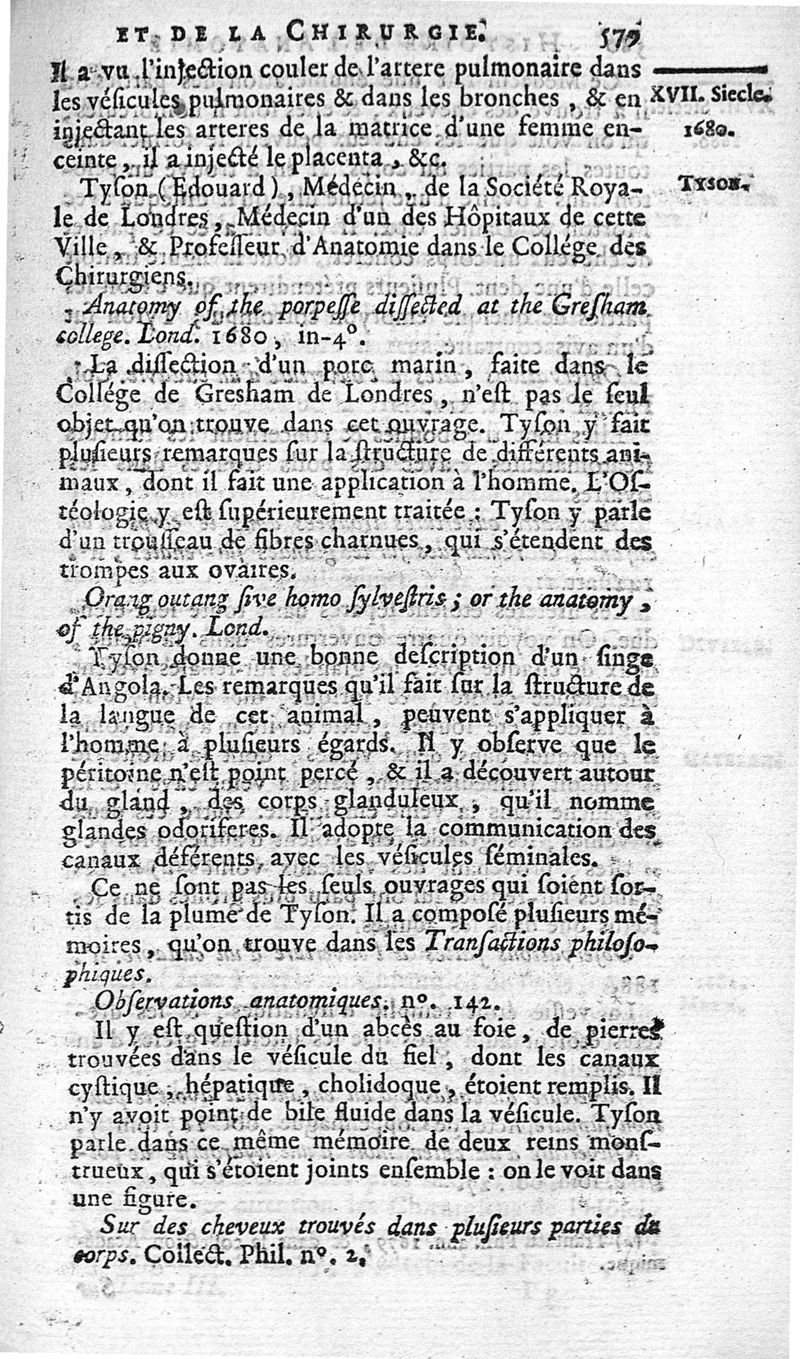 ET DE LA CHIRURGIE. 579
Il a vu l'injection couler de l'artere pulmonaire dans
les véſicules pulmonaires & dans les bronches, & en
injectant les arteres de la matrice d'une femme en-
ceinte, il a injecté le placenta, &c.
XVII. Siecle.
1680.
TYSON.
Tyſon (Edouard), Médecin, de la Société Roya-
le de Londres, Médecin d'un des Hôpitaux de cette
Ville, & Profeſſeur d'Anatomie dans le Collége des
Chirurgiens.
Anatomy of the porpeſſe diſſected at the Greſham
college. Lond. 1680, in-4°.
La diſſection d'un porc marin, faite dans le
Collége de Gresham de Londres, n'eſt pas le ſeul
objet qu'on trouve dans cet ouvrage. Tyſon y fait
pluſieurs remarques ſur la ſtructure de différents ani-
maux, dont il fait une application à l'homme. L'Oſ-
téologie y eſt ſupérieurement traitée : Tyſon y parle
d'un trouſſeau de fibres charnues, qui s'étendent des
trompes aux ovaires.
Orang outang ſive homo ſylveſtris ; or the anatomy,
of the pigny. Lond.
Tyſon donne une bonne deſcription d'un ſinge
d'Angola. Les remarques qu'il fait ſur la ſtructure de
la langue de cet animal, peuvent s'appliquer à
l'homme à pluſieurs égards. Il y obſerve que le
péritoine n'eſt point percé, & il a découvert autour
du gland, des corps glanduleux, qu'il nomme
glandes odoriferes. Il adopte la communication des
canaux déférents avec les véſicules ſéminales.
Ce ne ſont pas les ſeuls ouvrages qui ſoient ſor-
tis de la plume de Tyſon. Il a compoſé pluſieurs mé-
moires, qu'on trouve dans les Tranſactions philoſo-
phiques.
Obſervations anatomiques. n°. 142.
Il y eſt queſtion d'un abcès au foie, de pierres
trouvées dans le véſicule du fiel, dont les canaux
cyſtique, hépatique, cholidoque, étoient remplis. Il
n'y avoit point de bile fluide dans la véſicule. Tyſon
parle dans ce même mémoire de deux reins monſ-
trueux, qui s'étoient joints enſemble : on le voit dans
une figure.
Sur des cheveux trouvés dans pluſieurs parties du
corps. Collect. Phil. n°. 2.